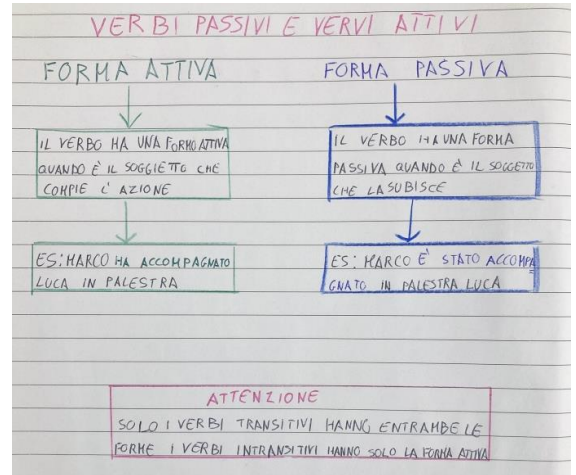 VERBI PASSIVI E VERVI ATTIVI
FORMA ATTIVA
IL VERBO HA UNA FORMO ATTIVA
QUANDO È IL SOGGIETTO CHE
COMPIE L'AZIONE
ES: MARCO HA ACCOMPAGNATO
LUCA IN PALESTRA
FORMA PASSIVA
IL VERBO HA UNA FORMA
PASSIVA QUANDO É IL SOGGETTO
CHE LA SUBISCE
ES: MARCO É STATO ACCOMPA
GNATO IN PALESTRA LUCA
ATTENZIONE
SOLO I VERBI TRANSITIVI HANNO ENTRAMBE LE
FORME I VERBI INTRANSITIVI HANNO SOLO LA FORMA ATTIVA